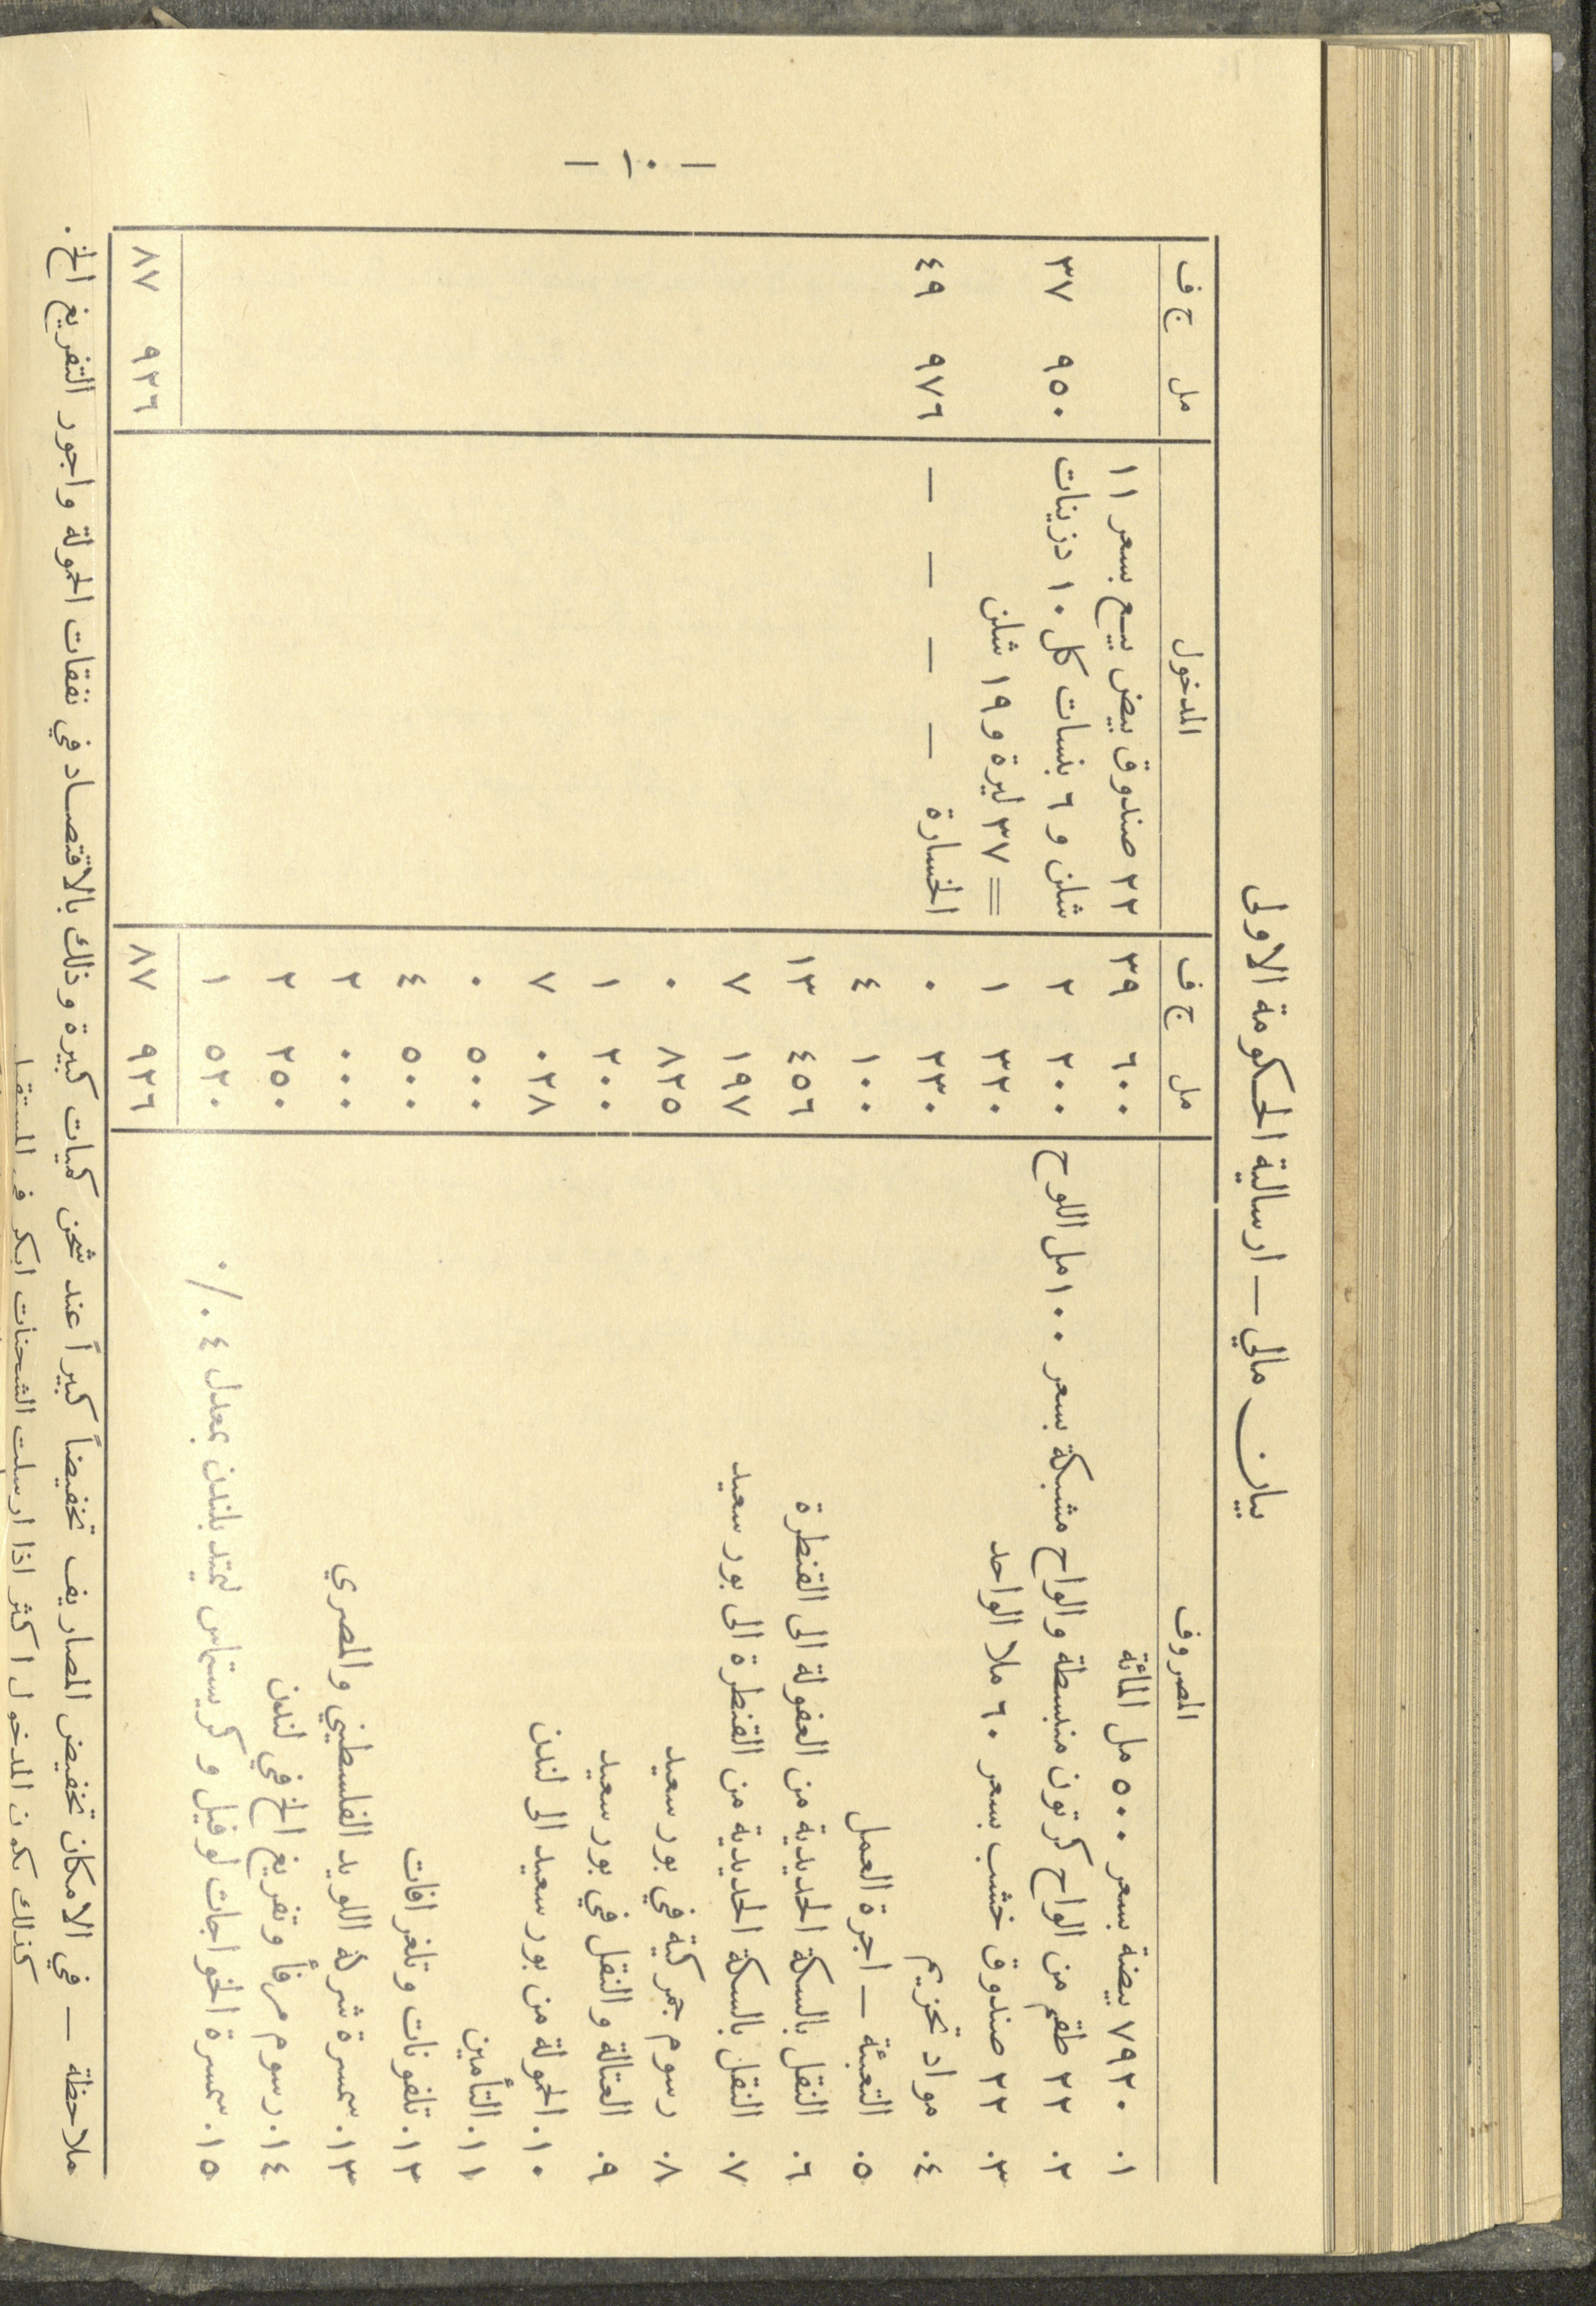 — ١٠ —
بيان مالي — ارسالية الحكومة الاولى
المصروف مل ج ف المدخول مل ج ف
١. ٧٩٢٠ بيضة بسعر ٥٠٠ مل المائة ٦٠٠ ٣٩ ٢٢ صندوق بيض بيع بسعر ١١
٢. ٢٢ طقم من الواح كرتون منبسطة والواح مشبكة بسعر ١٠٠ مل اللوح ٢٠٠ ٢ شلن و ٦ بنسات كل ١٠ دزينات ٩٥٠ ٣٧
٣. ٢٢ صندوق خشب بسعر ٦٠ ملا الواحد ٣٢٠ ١ = ٣٧ ليرة و ١٩ شلن
٤. مواد تحزيم ٢٣٠ ٠ الخسارة — — — — ٩٧٦ ٤٩
٥. التعبئة — اجرة العمل ١٠٠ ٤
٦. النقل بالسكة الحديدية من العفولة الى القنطرة ٤٥٦ ١٣
٧. النقل بالسكة الحديدية من القنطرة الى بور سعيد ١٩٧ ٧
٨. رسوم جمركية في بور سعيد ٨٢٥ ٠
٩. العتالة والنقل في بور سعيد ٢٠٠ ١
١٠. الحمولة من بور سعيد الى لندن ٠٢٨ ٧
١١. التأمين ٥٠٠ ٠
١٢. تلفونات وتلغرافات ٥٠٠ ٤
١٣. سمسرة شركة اللويد الفلسطيني والمصري ٠٠٠ ٢
١٤. رسوم مرفأ وتفريغ الخ في لندن ٢٥٠ ٢
١٥. سمسرة الخواجات لوفيل وكريستماس ليمتد بلندن بمعدل ٤ ٠/٠ ٥٢٠ ١
٩٢٦ ٨٧ ٩٢٦ ٨٧
ملاحظة — في الامكان تخفيض المصاريف تخفيضاً كبيراً عند شحن كميات كبيرة وذلك بالاقتصاد في نفقات الحمولة واجور التفريغ الخ.
كذلك يكون المدخول اكثر اذا ارسلت الشحنات ابكر في المستقبل